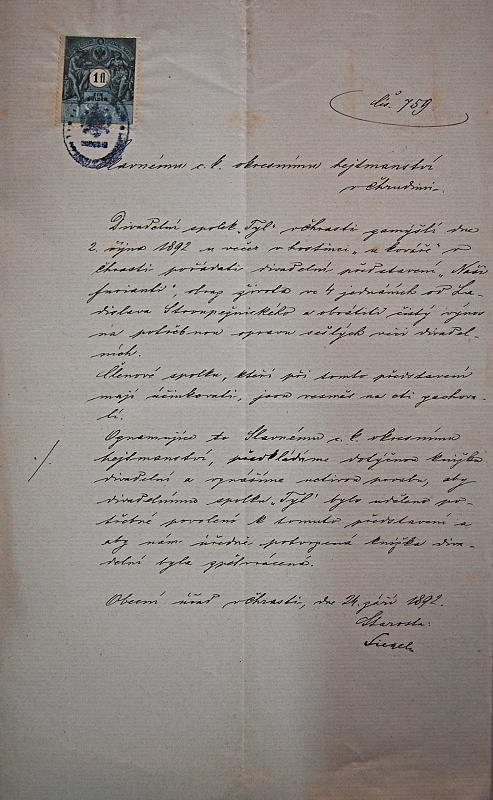 1 fl
čís. 759
Slavnému c. k. okresnímu hejtmanství
v Chrudimi.
Divadelní spolek „Tyl" v Chrasti pamýšlí dne
2. října 1892 u večer v hostinci „u kováře" v
Chrasti pořádati divadelní představení „Naši
furianti", obraz života ve 4 jednáních od La-
dislava Stroupežnického a obrátiti čistý výnos
na potřebnou opravu sešlých věcí divadel-
ních.
Členové spolku, kteří při tomto představení
mají účinkovati, jsou vesměs na oti zachova-
lí.
Oznamujíce to Slavnému c. k. okresnímu
hejtmanství, předkládáme dotyčnou knížku
divadelní a vznášíme uctivou prosbu, aby
divadelnímu spolku „Tyl" bylo uděleno po-
třebné povolení k tomuto představení a
aby nám úředně potvrzená knížka diva-
delní byla zpětvrácena.
Obecní úřad v Chrasti, dne 24. září 1892.
Starosta: